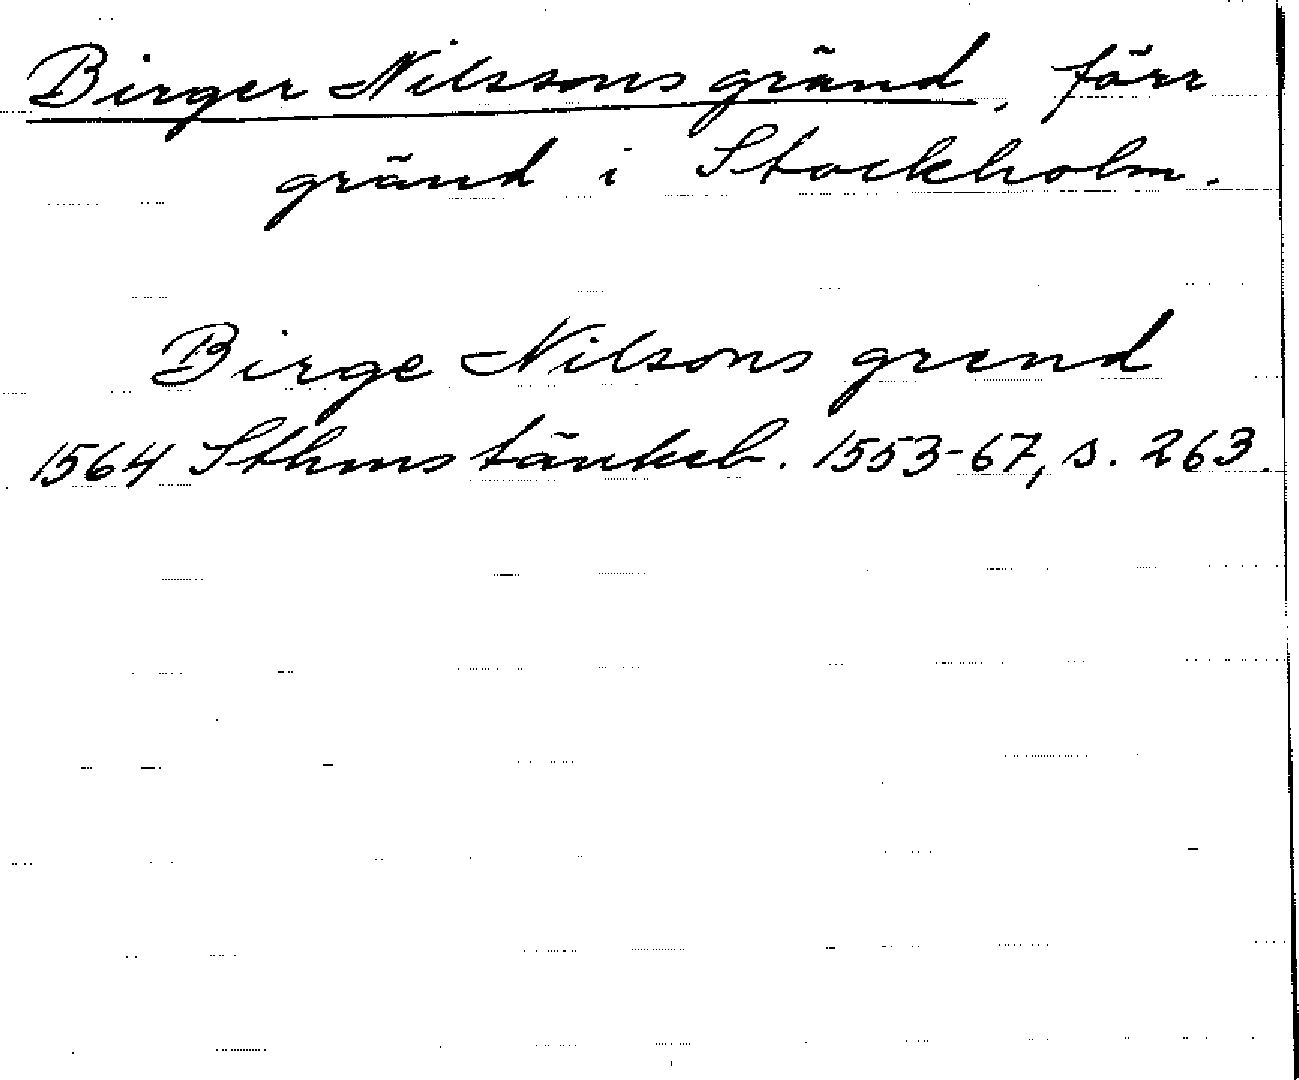 Birger Nilssons gränd, förr
gränd i Stockholm.
Birge Nilsons grend
1564 Sthms tänkeb. 1553-67, s. 263.